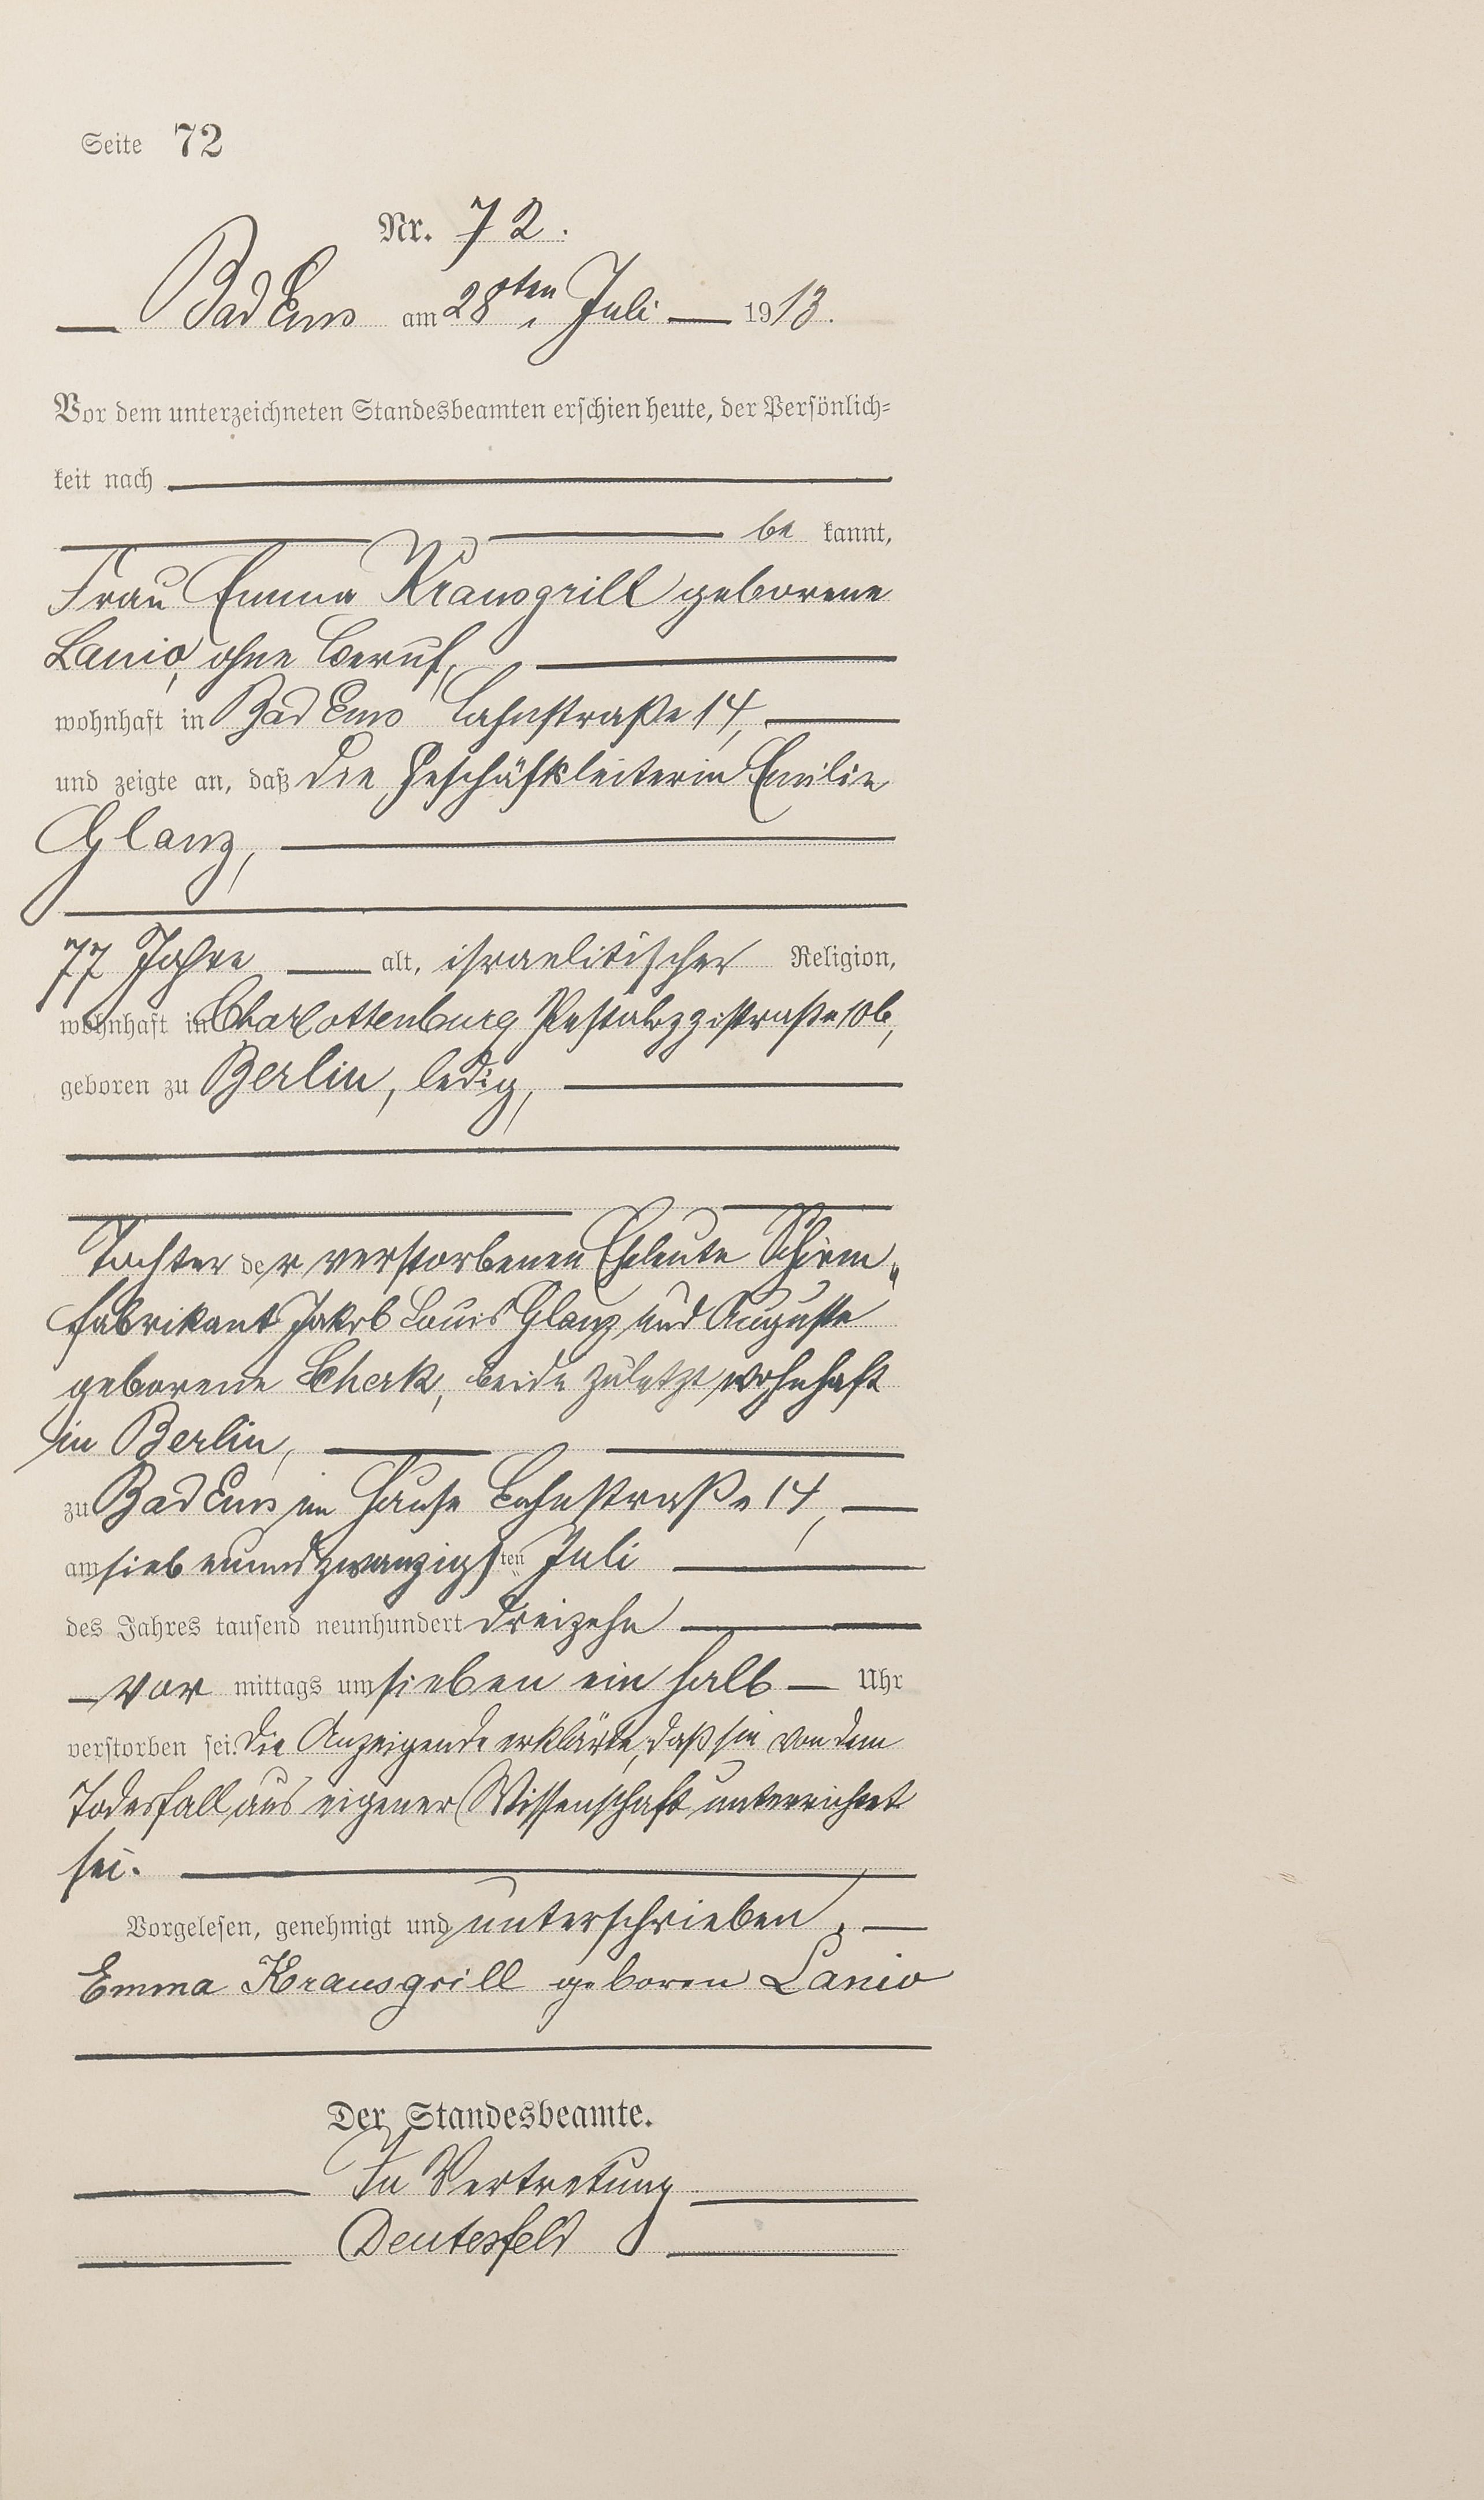 Seite 72
Nr. 72.
Bad Ems am 28ten Juli 1913.
Vor dem unterzeichneten Standesbeamten erschien heute, der Persönlich-
keit nach
be kannt,
Frau Emma Krausgrill geborene
Lanio, ohne Beruf,
wohnhaft in Bad Ems Lahnstraße 14,
und zeigte an, daß die Geschäftsleiterin Emilie
Glanz,
77 Jahre alt, israelitischer Religion,
wohnhaft in Charlottenburg Pestalozzistraße 10b,
geboren zu Berlin, ledig,
Tochter der verstorbenen Eheleute Schirm„
fabrikant Jakob Louis Glanz und Auguste
geborene Cherk, beide zuletzt wohnhaft
in Berlin,
zu Bad Ems im Hause Lahnstraße 14,
am siebenundzwanzigsten Juli
des Jahres tausend neunhundert dreizehn
vor mittags um sieben ein halb Uhr
verstorben sei. Die Anzeigende erklärte, daß sie von dem
Todesfall aus eigener Wissenschaft unterrichtet
sei.
Vorgelesen, genehmigt und unterschrieben.
Emma Krausgrill geboren Lanio
Der Standesbeamte.
In Vertretung
Deutesfeld